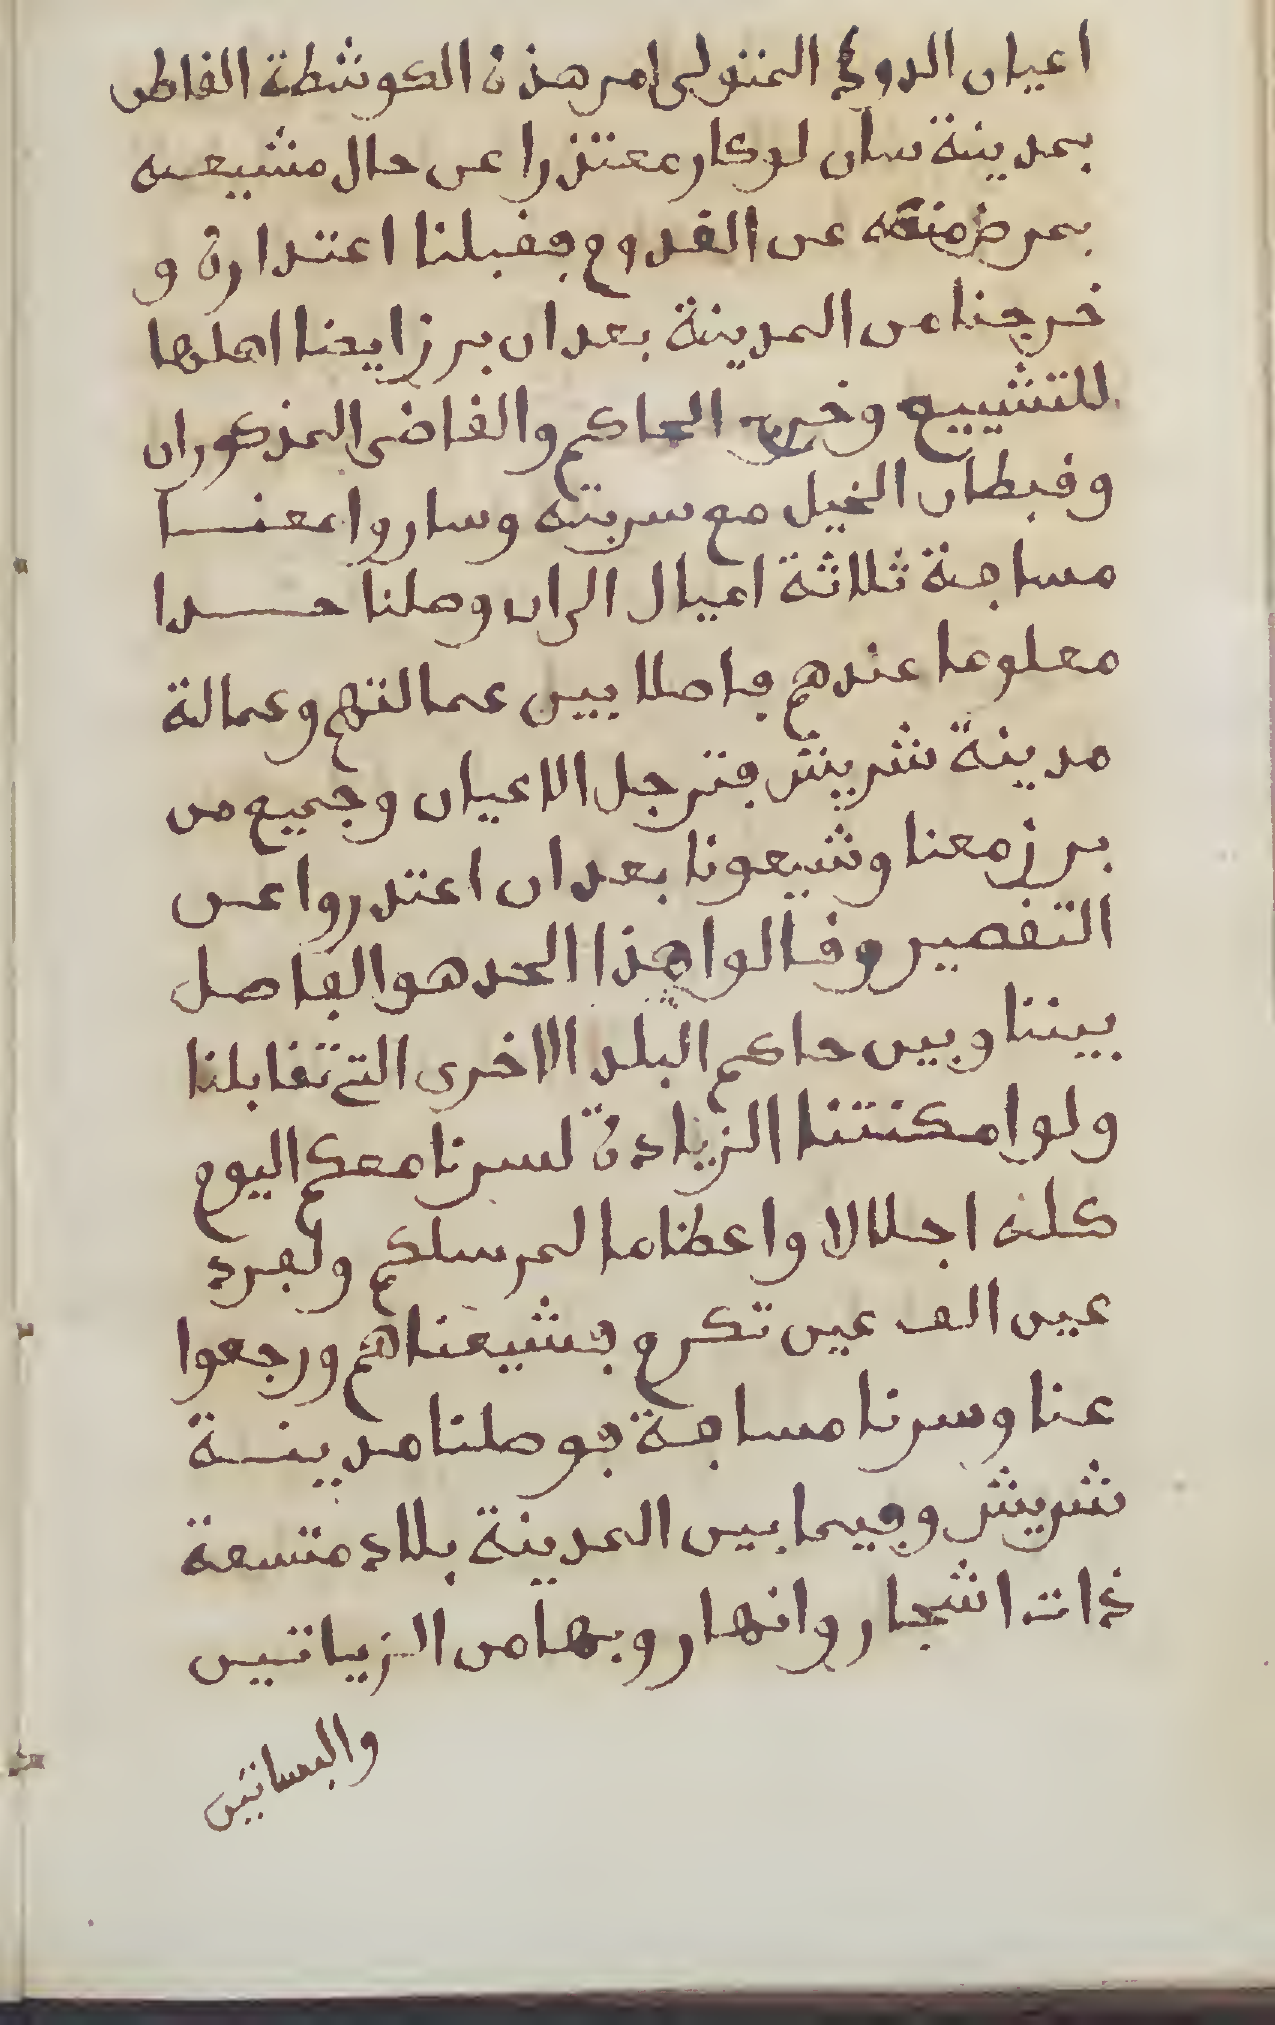 اعيان الدوك المتولى امر هذه الكوشطة القاطن
بمدينة سان لوكار معتذرا عن حال مشيعه
بمرض منعه عن القدوم فقبلنا اعتذاره و
خرجنا من المدينة بعد ان برز ايضا اهلها
للتشييع وخرج الحاكم والقاضى المذكوران
وقبطان الخيل مع سربته وساروا معنا
مسافة ثلاثة اميال الى ان وصلنا حدا
معلوما عندهم فاصلا بين عمالتهم وعمالة
مدينة شريش فترجل الاعيان وجميع من
برز معنا وشيعونا بعد ان اعتدروا عن
التقصير وقالوا هذا الحد هو الفاصل
بيننا وبين حاكم البلد الاخرى التي تقابلنا
ولو امكنتنا الزيادة لسرنا معكم اليوم
كله اجلالا واعظاما لمرسلكم ولفرد
عين الف عين تكرم فشيعناهم ورجعوا
عنا وسرنا مسافة فوصلنا مدينة
شريش وفيما بين المدينة بلاد متسعة
ذات اشجار وانهار وبها من الزياتين
والبساتين